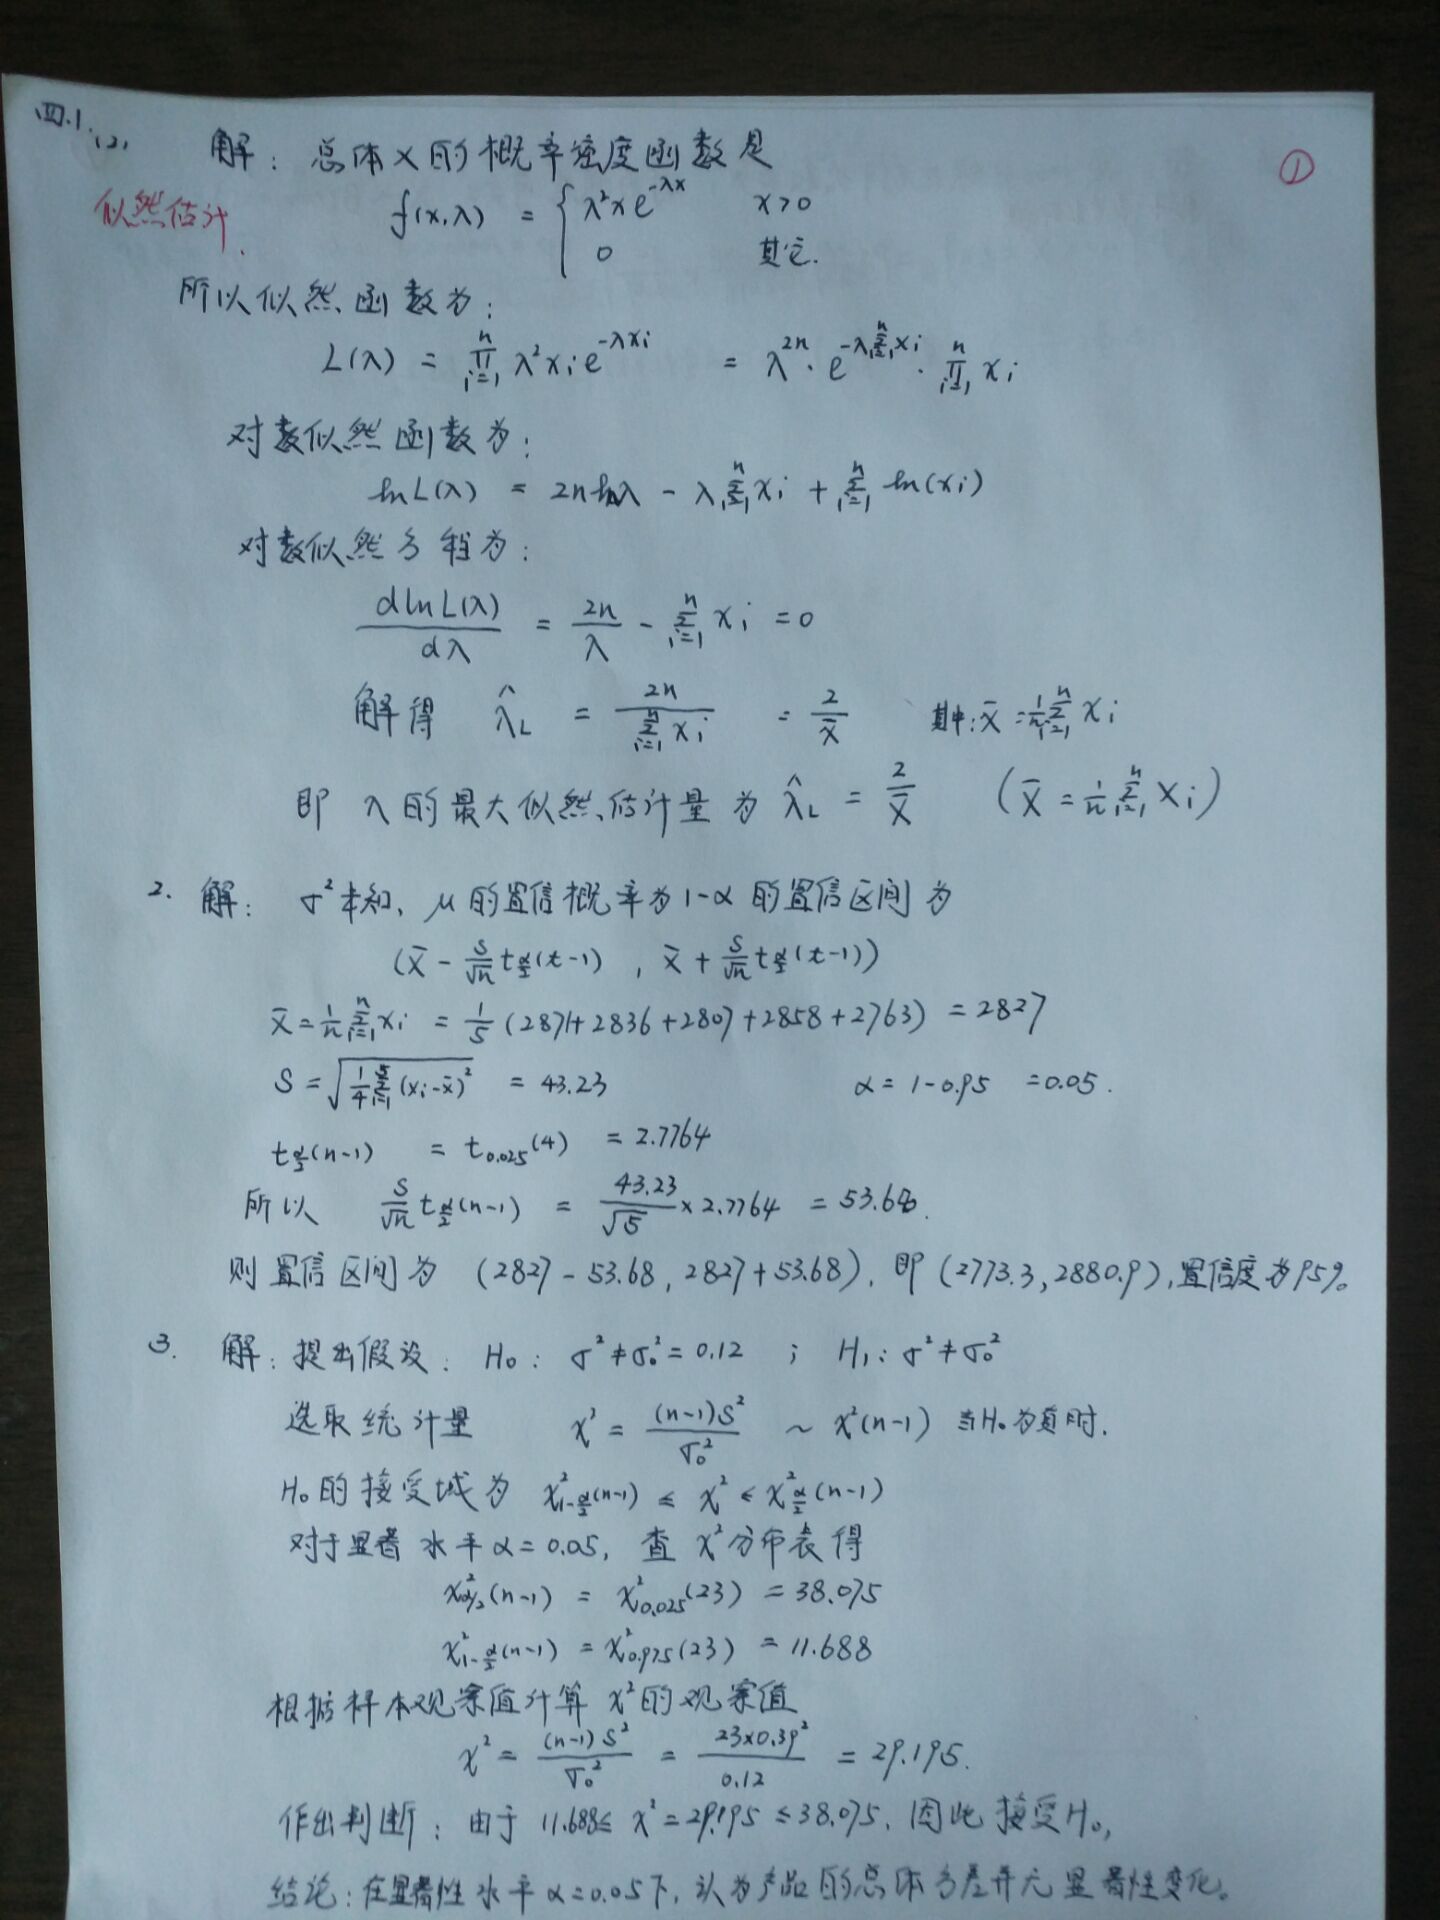 四.1.(2)
解：总体X的概率密度函数是
①
似然估计.
f(x,λ) = { λ²xe^{-λx} x>0
0 其它.
所以似然函数为：
L(λ) = ∏_{i=1}^{n} λ²x_i e^{-λx_i} = λ^{2n}·e^{-λ∑_{i=1}^{n}x_i}·∏_{i=1}^{n} x_i
对数似然函数为：
lnL(λ) = 2nlnλ - λ∑_{i=1}^{n}x_i + ∑_{i=1}^{n} ln(x_i)
对数似然方程为：
dlnL(λ)/dλ = 2n/λ - ∑_{i=1}^{n} x_i = 0
解得 λ̂_L = 2n/∑_{i=1}^{n}x_i = 2/x̄ 其中：x̄ = 1/n ∑_{i=1}^{n} x_i
即 λ的最大似然估计量为 λ̂_L = 2/X̄ (X̄ = 1/n ∑_{i=1}^{n} X_i)
2. 解： σ²未知、μ的置信概率为1-α的置信区间为
(X̄ - S/√n t_{α/2}(t-1) , X̄ + S/√n t_{α/2}(t-1))
x̄ = 1/n ∑_{i=1}^{n}x_i = 1/5 (2871+2836+2807+2858+2763) = 2827
S = √(1/4 ∑_{i=1}^{5}(x_i-x̄)²) = 43.23 α = 1-0.95 = 0.05.
t_{α/2}(n-1) = t_{0.025}(4) = 2.7764
所以 S/√n t_{α/2}(n-1) = 43.23/√5 × 2.7764 = 53.68.
则置信区间为 (2827-53.68, 2827+53.68)，即(2773.3, 2880.9),置信度为95%
3. 解：提出假设： H₀: σ²≠σ₀²=0.12 ； H₁: σ²≠σ₀²
选取统计量 χ² = (n-1)S²/σ₀² ~ χ²(n-1) 当H₀为真时.
H₀的接受域为 χ²_{1-α/2}(n-1) ≤ χ² ≤ χ²_{α/2}(n-1)
对于显著水平α=0.05, 查χ²分布表得
χ²_{α/2}(n-1) = χ²_{0.025}(23) = 38.075
χ²_{1-α/2}(n-1) = χ²_{0.975}(23) = 11.688
根据样本观察值计算χ²的观察值
χ² = (n-1)S²/σ₀² = 23×0.39²/0.12 = 29.195.
作出判断：由于11.688≤χ²=29.195≤38.075. 因此接受H₀,
结论：在显著性水平α=0.05下,认为产品的总体方差并无显著性变化。